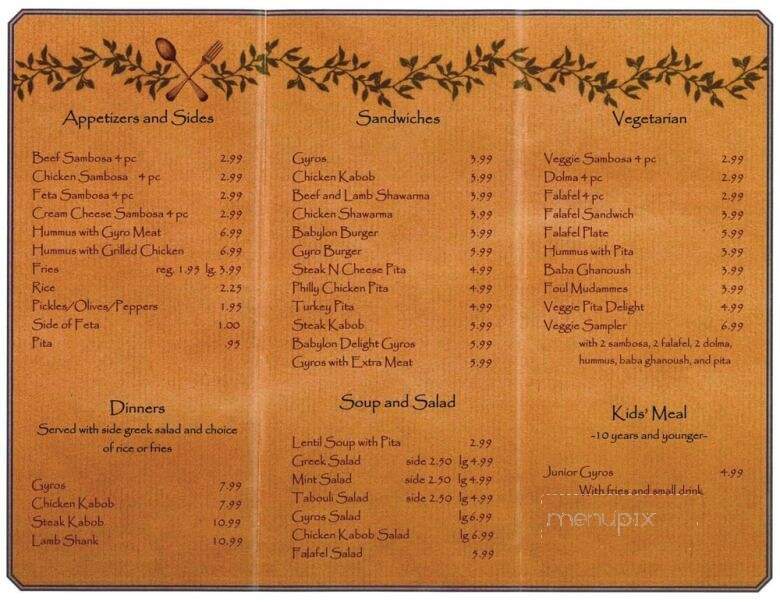 Appetizers and Sides
Beef Sambosa 4 pc 2.99
Chicken Sambosa 4 pc 2.99
Feta Sambosa 4 pc 2.99
Cream Cheese Sambosa 4 pc 2.99
Hummus with Gyro Meat 6.99
Hummus with Grilled Chicken 6.99
Fries reg. 1.95 lg. 3.99
Rice 2.25
Pickles/Olives/Peppers 1.95
Side of Feta 1.00
Pita .95
Dinners
Served with side greek salad and choice
of rice or fries
Gyros 7.99
Chicken Kabob 7.99
Steak Kabob 10.99
Lamb Shank 10.99
Sandwiches
Gyros 3.99
Chicken Kabob 3.99
Beef and Lamb Shawarma 3.99
Chicken Shawarma 3.99
Babylon Burger 3.99
Gyro Burger 5.99
Steak N Cheese Pita 4.99
Philly Chicken Pita 4.99
Turkey Pita 4.99
Steak Kabob 5.99
Babylon Delight Gyros 5.99
Gyros with Extra Meat 5.99
Soup and Salad
Lentil Soup with Pita 2.99
Greek Salad side 2.50 lg 4.99
Mint Salad side 2.50 lg 4.99
Tabouli Salad side 2.50 lg 4.99
Gyros Salad lg 6.99
Chicken Kabob Salad lg 6.99
Falafel Salad 5.99
Vegetarian
Veggie Sambosa 4 pc 2.99
Dolma 4 pc 2.99
Falafel 4 pc 2.99
Falafel Sandwich 3.99
Falafel Plate 5.99
Hummus with Pita 3.99
Baba Ghanoush 3.99
Foul Mudammes 3.99
Veggie Pita Delight 4.99
Veggie Sampler 6.99
with 2 sambosa, 2 falafel, 2 dolma,
hummus, baba ghanoush, and pita
Kids' Meal
-10 years and younger-
Junior Gyros 4.99
With fries and small drink
menupix